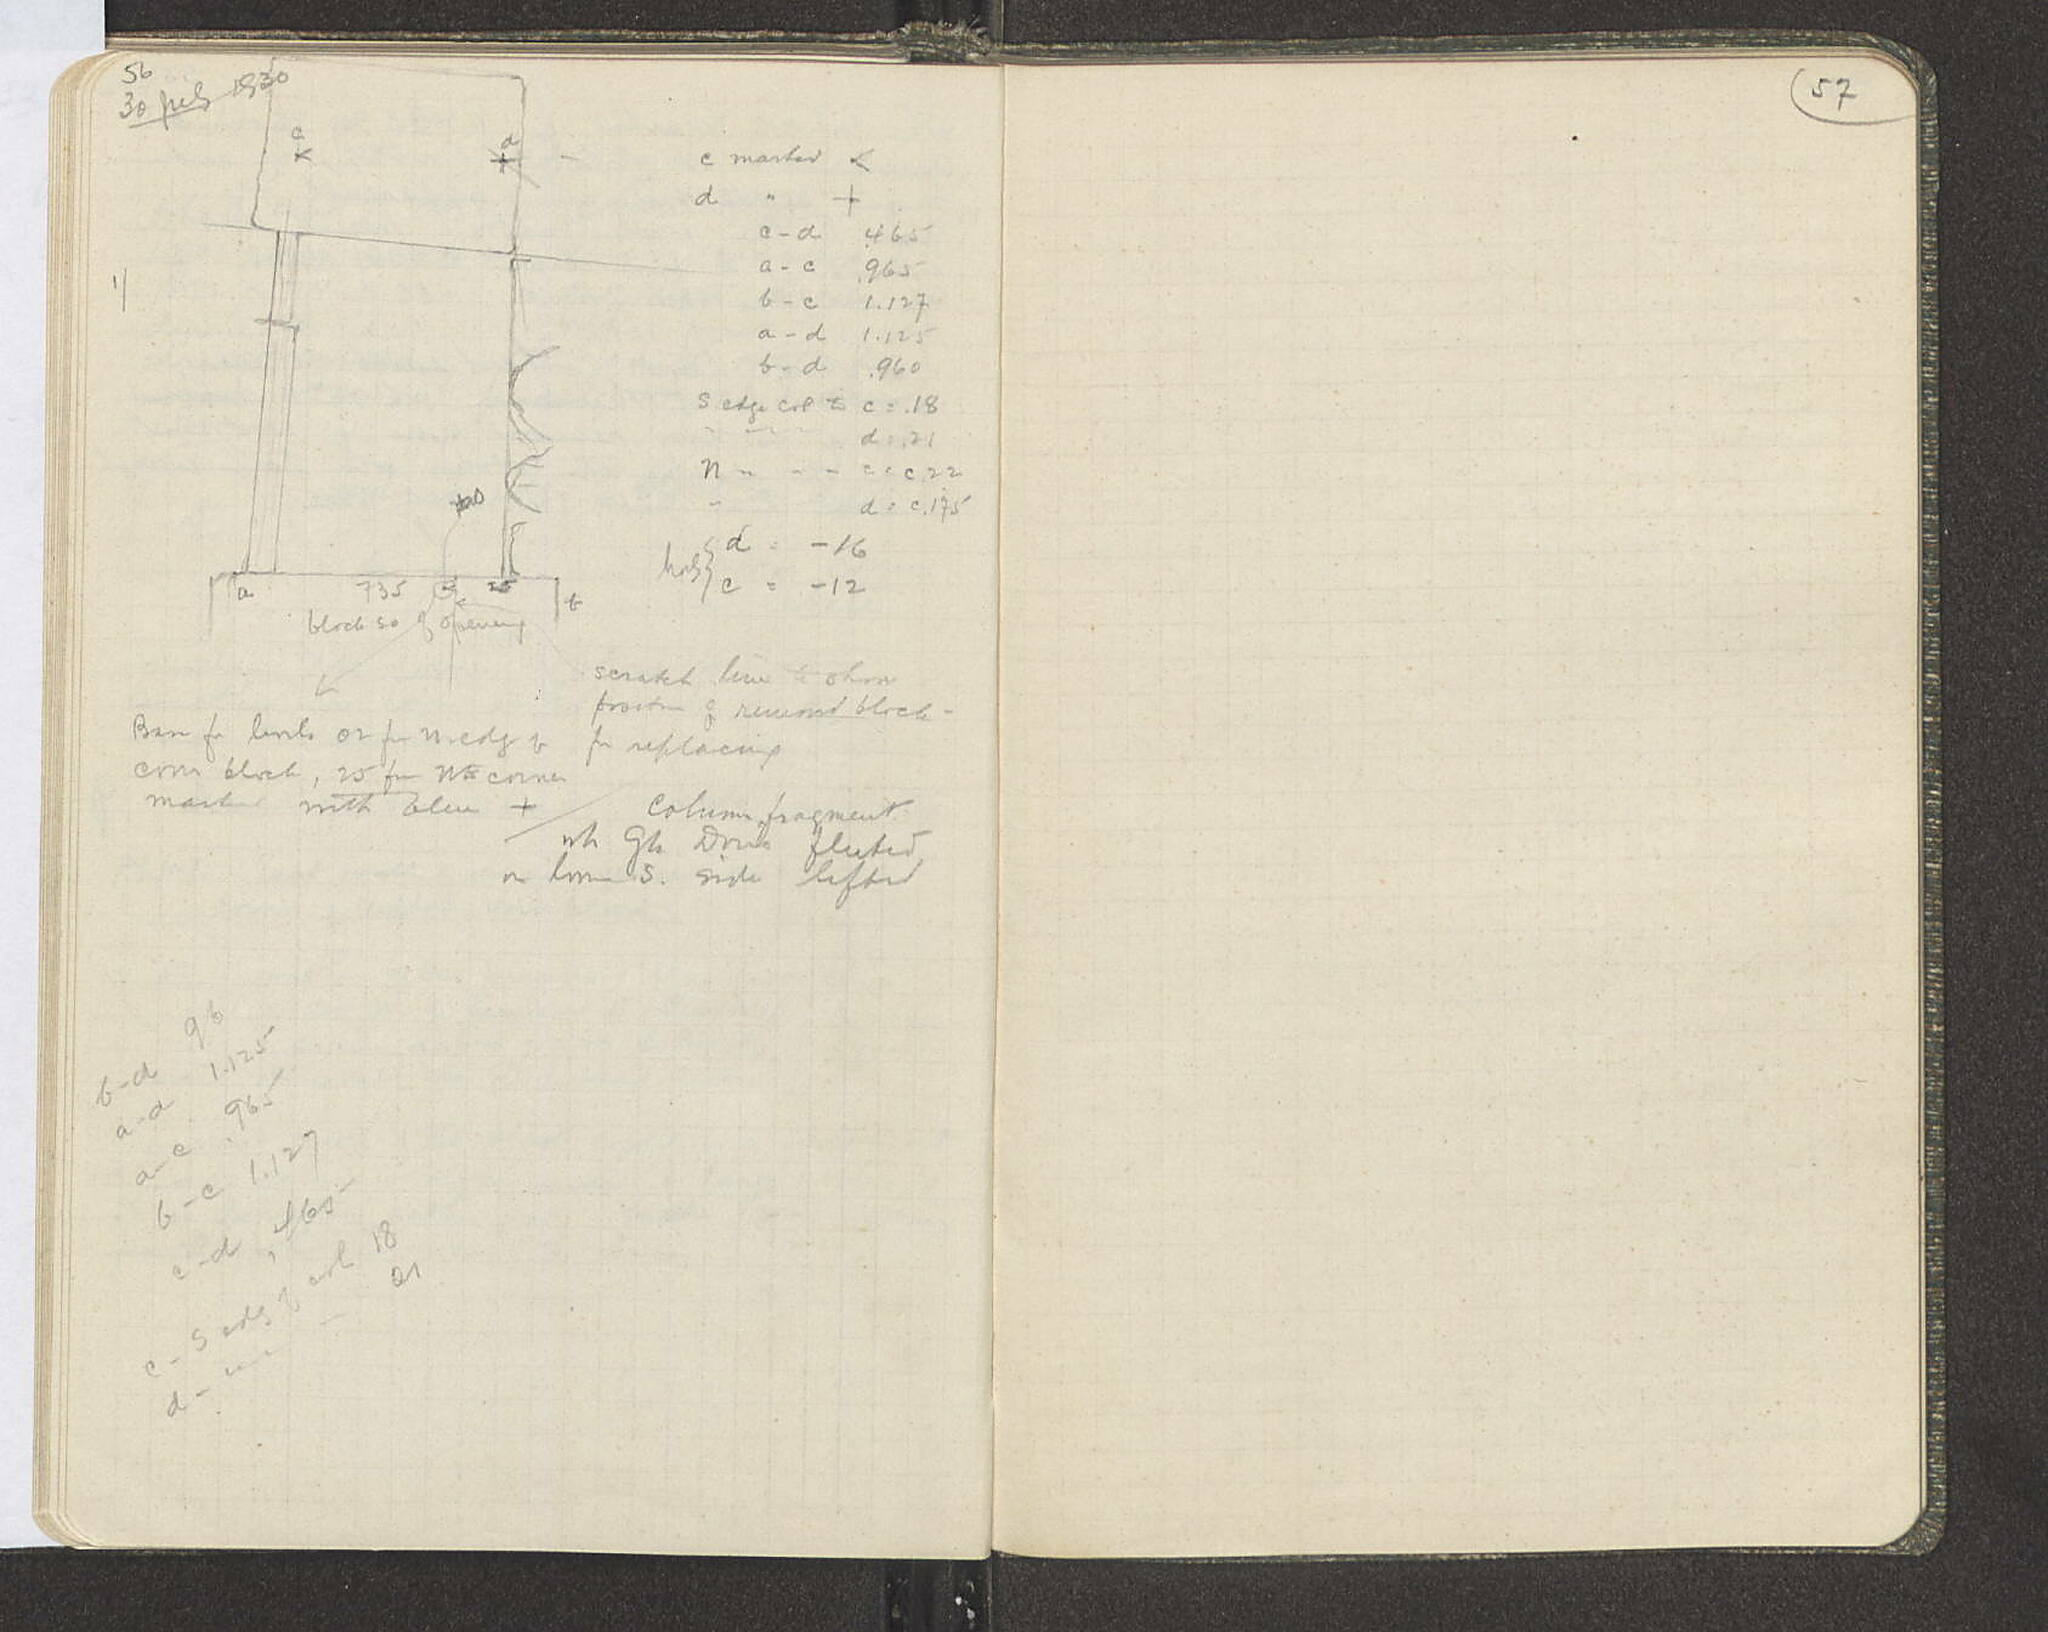 56
30 July 1930
57
c
d
c marked <
d " +
c-d .465
a-c .965
b-c 1.127
a-d 1.125
b-d .960
S edge col to c = .18
d = .21
N " - - c = c.22
" d = c.175
d = -16
c = -12
a 735 25 b
block so of opening
scratch line to show
position of removed block -
for replacing
Base for levels 02 from N edge of
cover block, 25 from NE corner
marked with blue +
Column fragment
wh Gk Doric fluted
on lower S. side lifted
b-d 96
a-d 1.125
a-c .965
b-c 1.127
c-d .465
c - S edge of col 18
d - " - 21